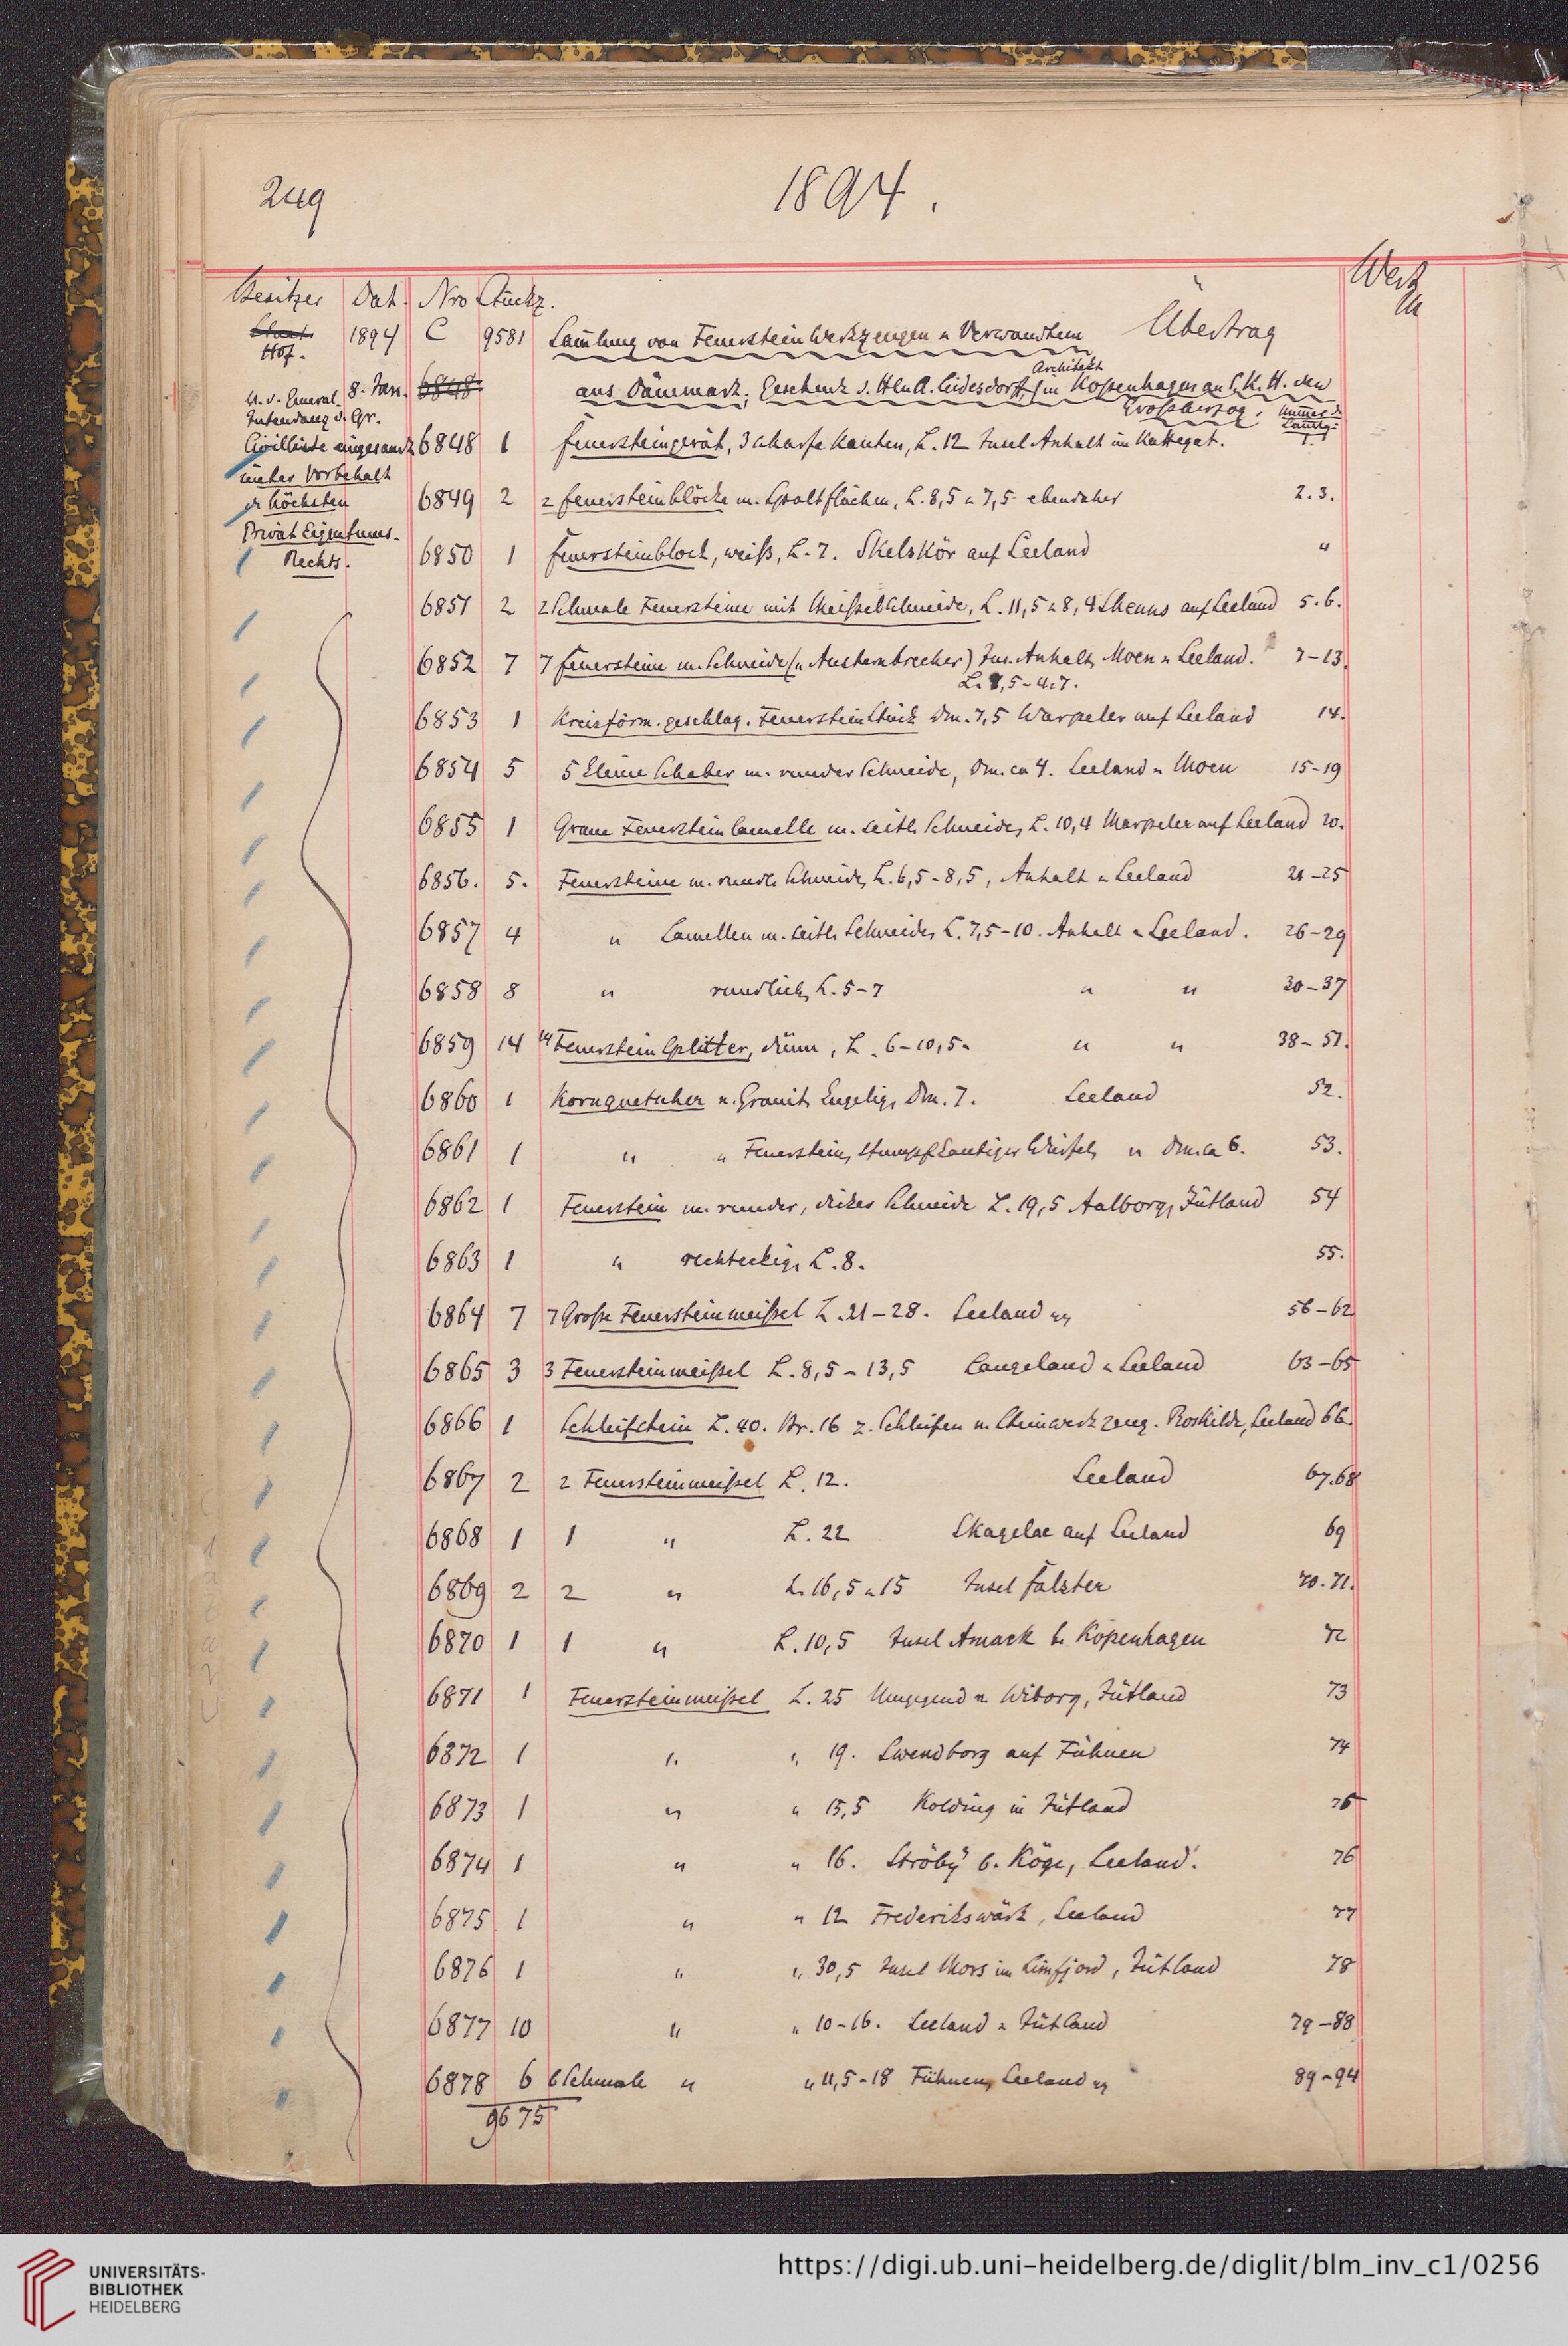 249
1894.
Besitzer Dat. Nro Stückz. Wert
M
Staat 1894 C 9581 Samlung von Feuerstein Werkzeugen u Verwandtem Übertrag
Hof.
8. Jan. 6848 aus Dänemark; Geschenk v. Hln A. Leidesdorff, Architekt in Kopenhagen an S. K. H. den
Grossherzog.
U. v. General
Intendanz d. Gr.
Civilliste eingesandt
unter Vorbehalt
d. höchsten
Privat Eigentums-
Rechts.
6848 1 Feuersteingerät, 3 scharfe Kanten, L. 12 Insel Anhalt im Kattegat. 1.
6849 2 2 Feuersteinblöcke m. Spaltflächen, L. 8,5 u 7,5 ebendaher 2.3.
6850 1 Feuersteinblock, weiß, L. 7. Skelskör auf Seeland "
6851 2 2 Schmale Feuersteine mit Meißelschneide, L. 11,5 u 8, auf Seeland 5.6.
6852 7 7 Feuersteine m. Schneide (" Austernbrecher) Ins. Anhalt, Moen u Seeland. 7-13.
L. 8,5-4,7.
6853 1 Kreisförm. geschlag. Feuerstein Stück Dm. 7,5 Warpelev auf Seeland 14.
6854 5 5 kleine Schaber m. runder Schneide, Dm. ca 4. Seeland u Moen 15-19
6855 1 Graue Feuerstein lamelle m. seitl. Schneide, L. 10,4 Warpelev auf Seeland 20.
6856. 5. Feuersteine m. rundl. Schneide, L. 6,5-8,5, Anhalt u Seeland 21-25
6857 4 " Lamellen m. seitl. Schneide, L. 7,5-10. Anhalt u Seeland. 26-29
6858 8 " rundlich, L. 5-7 " " 30-37
6859 14 14 Feuerstein Splitter, dünn, L. 6-10,5. " " 38-51.
6860 1 Kornquetscher v. Granit, kugelig, Dm. 7. Seeland 52.
6861 1 " " Feuerstein, stumpfkantiger Würfel, " Dm. ca 6. 53.
6862 1 Feuerstein m. runder, dicker Schneide L. 19,5 Aalborg, Jütland 54
6863 1 " rechteckig, L. 8. 55.
6864 7 7 Große Feuersteinmeißel L. 21-28. Seeland 56-62
6865 3 3 Feuersteinmeißel L. 8,5-13,5 Langeland u Seeland 63-65
6866 1 Schleifstein L. 40. Br. 16 z. Schleifen v. Steinwerkzeug. Roskilde, Seeland 66.
6867 2 2 Feuersteinmeißel L. 12. Seeland 67.68
6868 1 1 " L. 22 Skagelae auf Seeland 69
6869 2 2 " L. 16,5 u 15 Insel Falster 70.71.
6870 1 1 " L. 10,5 Insel Amack b. Kopenhagen 72
6871 1 Feuersteinmeißel L. 25 Umgegend v. Wiborg, Jütland 73
6872 1 " " 19. Swendborg auf Fühnen 74
6873 1 " " 15,5 Kolding in Jütland 75
6874 1 " " 16. Ströby b. Köge, Seeland. 76
6875 1 " " 12 Frederikswärk, Seeland 77
6876 1 " " 30,5 Insel Mors im Limfjord, Jütland 78
6877 10 " " 10-16. Seeland u Jütland 79-88
6878 6 6 Schmale " " 11,5-18 Fühnen, Seeland 89-94
9675
UNIVERSITÄTS-
BIBLIOTHEK
HEIDELBERG
https://digi.ub.uni-heidelberg.de/diglit/blm_inv_c1/0256